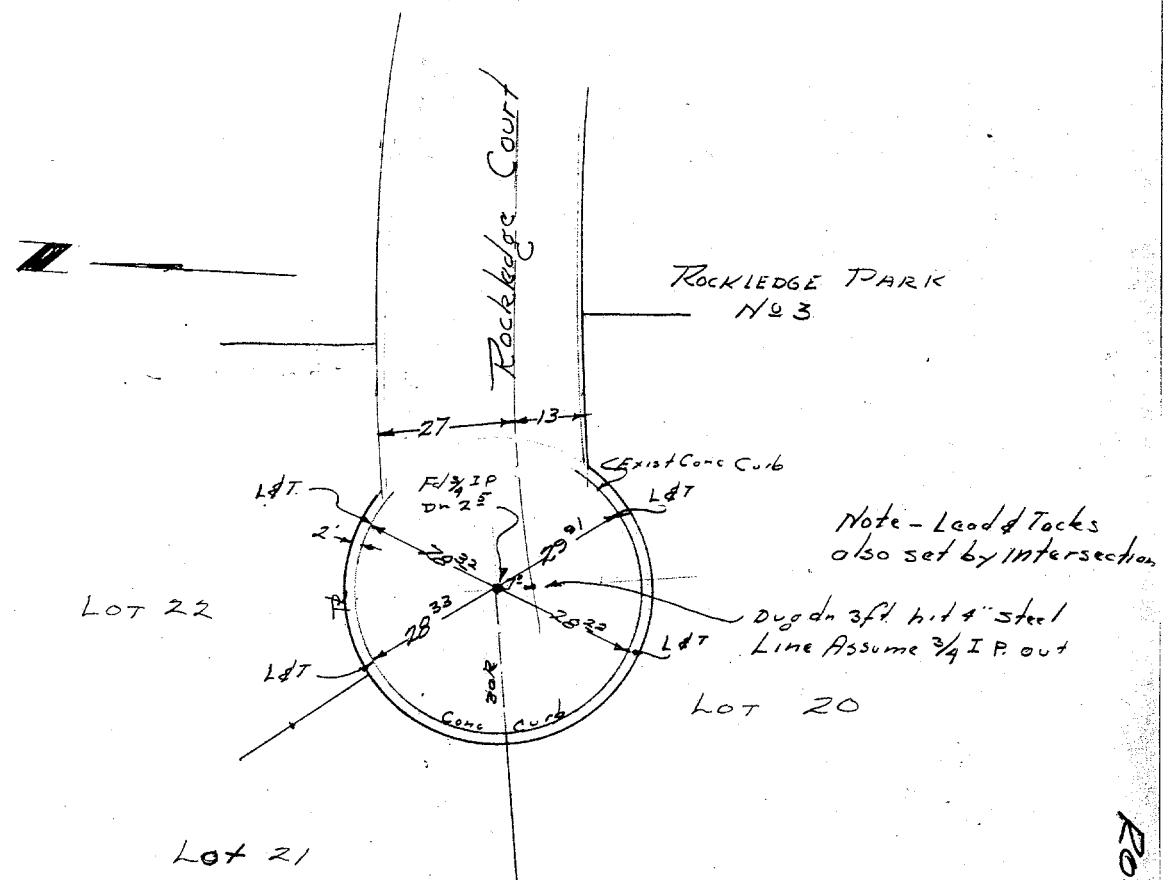 Rockledge Court
N
ROCKLEDGE PARK
Nº 3
27
13
Exist Conc Curb
Fd 3/4 I P
Dn 2⁵
L&T
L&T
2'
28³²
29⁸¹
Note - Lead & Tacks
also set by Intersection
LOT 22
28³³
28³²
Dug dn 3ft. hit 4" steel
Line Assume 3/4 I P. out
L&T
L&T
30R
LOT 20
Conc Curb
Lot 21
Ro